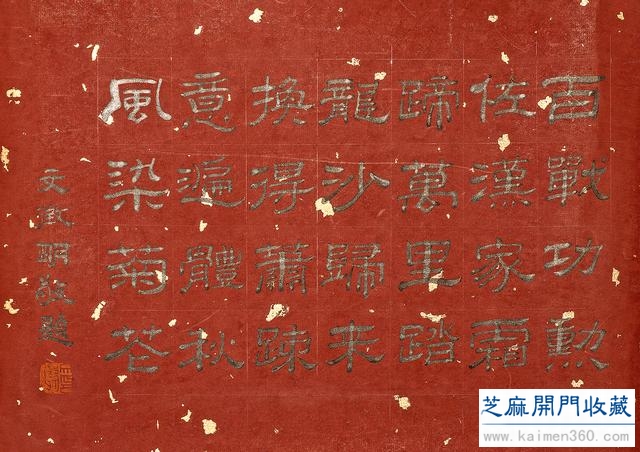 百戰功勳
佐漢家霜
蹄萬里踏
龍沙歸來
換得蕭踈
意遍體秋
風染菊花
文徵明敬題
芝麻開門收藏
www.kaimen360.com